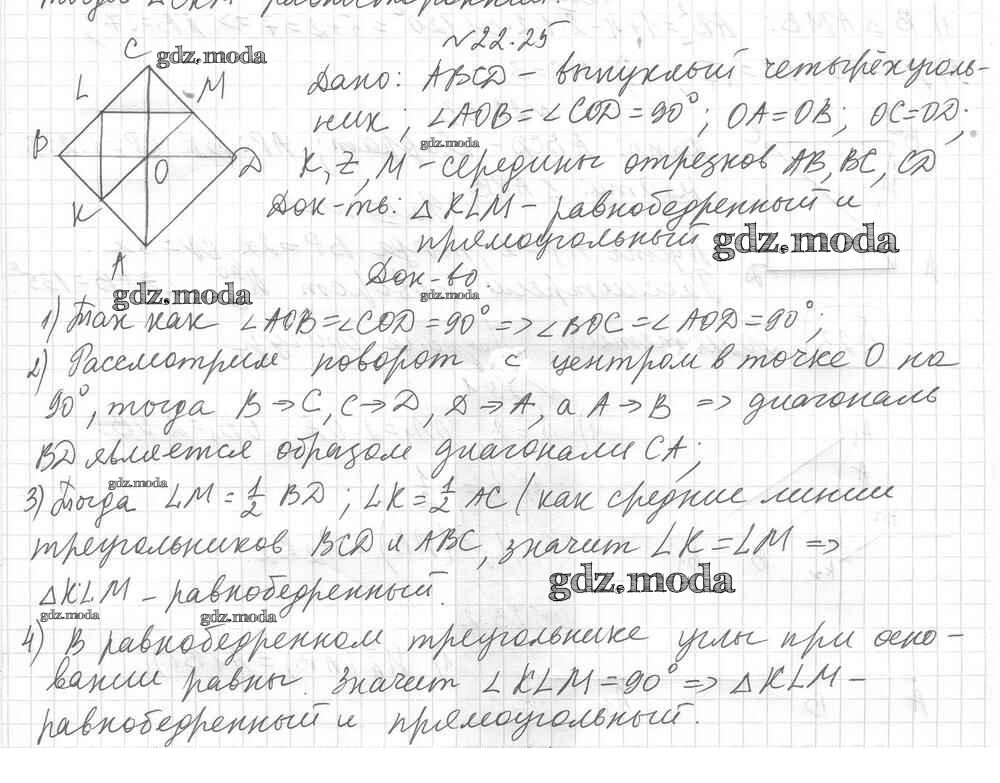 тогда △СКМ равносторонний.
№22.25
C
L
M
B
D
O
K
A
Дано: ABCD – выпуклый четырёхуголь-
ник; ∠AOB = ∠COD = 90°; OA = OB; OC = OD;
K, Z, M – середины отрезков AB, BC, CD
Док-ть: △KLM – равнобедренный и
прямоугольный
Док-во.
1) Так как ∠AOB = ∠COD = 90° => ∠BOC = ∠AOD = 90°;
2) Рассмотрим поворот с центром в точке O на
90°, тогда B → C, C → D, D → A, а A → B => диагональ
BD является образом диагонали CA;
3) Тогда LM = 1/2 BD; LK = 1/2 AC (как средние линии
треугольников BCD и ABC, значит LK = LM =>
△KLM – равнобедренный.
4) В равнобедренном треугольнике углы при осно-
вании равны. Значит ∠KLM = 90° => △KLM –
равнобедренный и прямоугольный.
gdz.moda
gdz.moda
gdz.moda
gdz.moda
gdz.moda
gdz.moda
gdz.moda
gdz.moda
gdz.moda